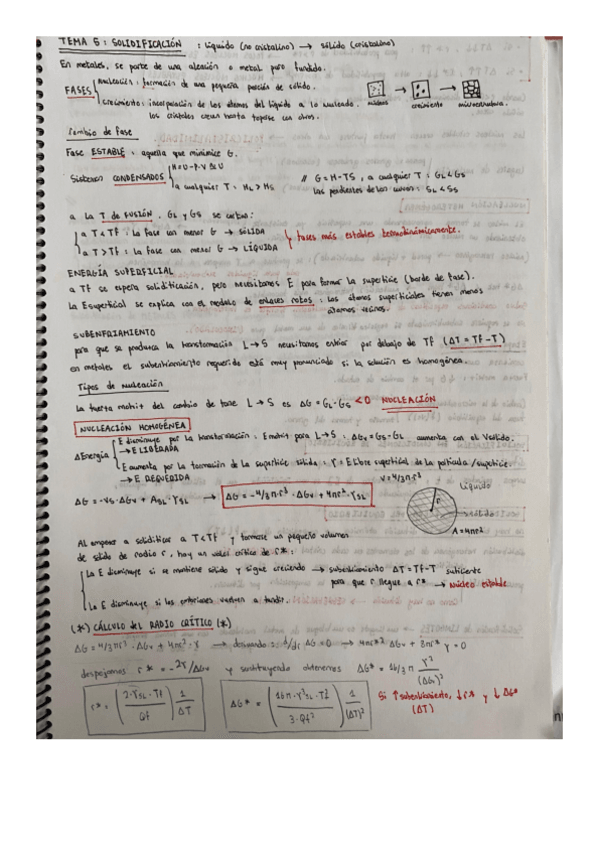 TEMA 5: SOLIDIFICACIÓN : líquido (no cristalino) → sólido (cristalino)
En metales, se parte de una aleación o metal puro fundido.
FASES
Nucleación: formación de una pequeña porción de sólido.
Crecimiento: incorporación de los átomos del líquido a lo nucleado.
los cristales crecen hasta toparse con otros.
núcleos → crecimiento → microestructura.
Cambio de fase
Fase ESTABLE: aquella que minimice G.
Sistemas CONDENSADOS
a cualquier T: HL > HS
// G = H-TS, a cualquier T: GL < GS
las pendientes de las curvas: SL < SS
a la T de FUSIÓN, GL y GS se cortan:
a T < Tf: la fase con menor G → SÓLIDA
a T > Tf: la fase con menor G → LÍQUIDA
fases más estables termodinámicamente.
ENERGÍA SUPERFICIAL
a Tf se espera solidificación, pero necesitamos E para formar la superficie (borde de fase).
La Esuperficial se explica con el modelo de enlaces rotos: los átomos superficiales tienen menos
átomos vecinos.
SUBENFRIAMIENTO
para que se produzca la transformación L→S necesitamos enfriar por debajo de Tf (ΔT = Tf - T)
en metales el subenfriamiento requerido está muy pronunciado si la solución es homogénea.
Tipos de nucleación
La fuerza motriz del cambio de fase L → S es ΔG = GL - GS < 0 NUCLEACIÓN
NUCLEACIÓN HOMOGÉNEA
ΔEnergía
E disminuye por la transformación: E motriz para L→S: ΔGv = GS - GL aumenta con el
→ E LIBERADA
E aumenta por la formación de la superficie sólida: γ = E libre superficial de la partícula/superficie.
→ E REQUERIDA
ΔG = -VS · ΔGv + ASL · γSL → ΔG = -4/3πr³ · ΔGv + 4πr² · γSL
V = 4/3πr³
líquido
r
sólido
A = 4πr²
Al empezar a solidificar a T < Tf y formarse un pequeño volumen
de sólido de radio r, hay un valor crítico de r*:
La E disminuye si se mantiene sólido y sigue creciendo → subenfriamiento ΔT = Tf - T suficiente
para que r llegue a r* → núcleo estable
La E disminuye si los anteriores vuelven a fundir.
(*) CÁLCULO del RADIO CRÍTICO (*)
ΔG = 4/3πr³ · ΔGv + 4πr² · γ → derivando: d/dr ΔG = 0 → 4πr*² ΔGv + 8πr* γ = 0
despejamos r* = -2γ/ΔGv y sustituyendo obtenemos ΔG* = 16/3 π γ³/(ΔGv)²
r* = (2 · γSL · Tf / Qf) 1/ΔT
ΔG* = (16π · γ³SL · Tf² / 3 · Qf²) 1/(ΔT)²
Si ↑ subenfriamiento, ↓ r* y ↓ ΔG*
(ΔT)